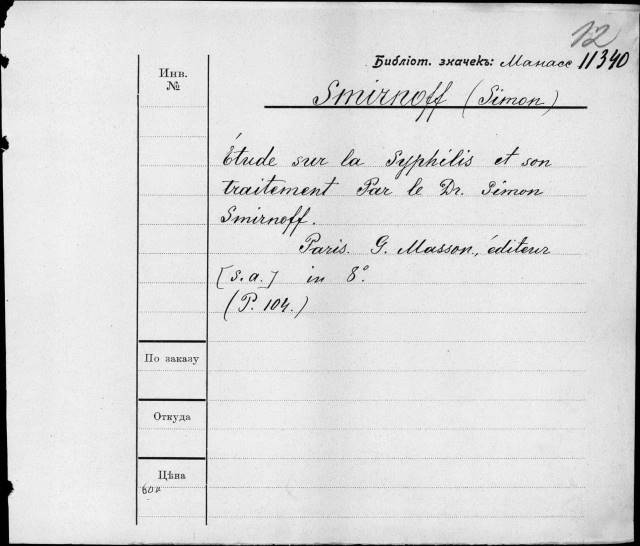 12
Библіот. значекъ: Манасс 11340
Инв.
№
Smirnoff (Simon)
Étude sur la Syphilis et son
traitement Par le Dr. Simon
Smirnoff.
Paris. G. Masson, éditeur
[s.a.] in 8°.
(P. 104.)
По заказу
Откуда
Цѣна